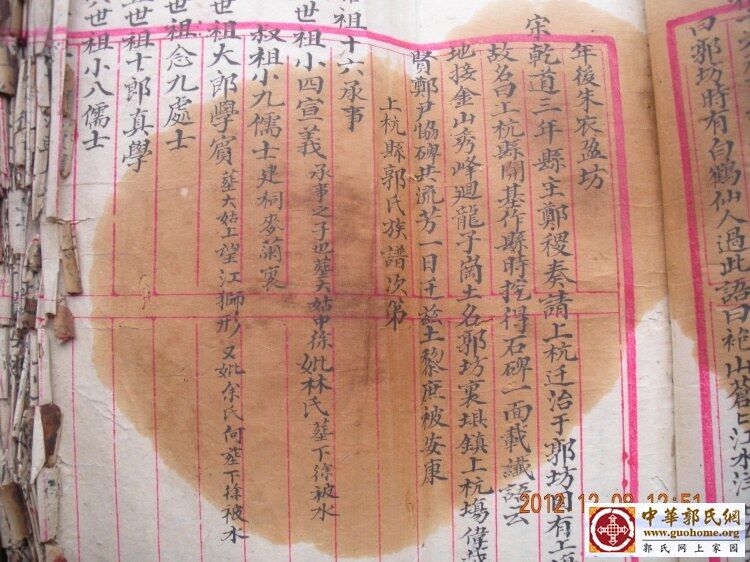 曰郭坊時有白鶴仙人過此語曰袍山蒼江水
年後朱衣盈坊
宋乾道三年縣主鄭稷奏請上杭迁治于郭坊因有上
故名曰上杭縣開基作縣時挖得石碑一面載讖語云
地接金山秀峰廻龍子崗土名郭坊裏埧鎮上杭場偉
賢鄭尹協碑共流芳一日迁茲土黎庶被安康
上杭縣郭氏族譜次第
祖十六承事
世祖小四宣義 承事之子也葬大姑中徐妣林氏葬下徐被水
叔祖小九儒士建祠麥裏
世祖大郎學賓 葬大姑上望江獅形 又妣余氏何葬下徐被水
世祖念九處士
世祖十郎真學
世祖小八儒士
2012 12 09 12:51
中華郭氏網
www.guohome.org
郭氏网上家园